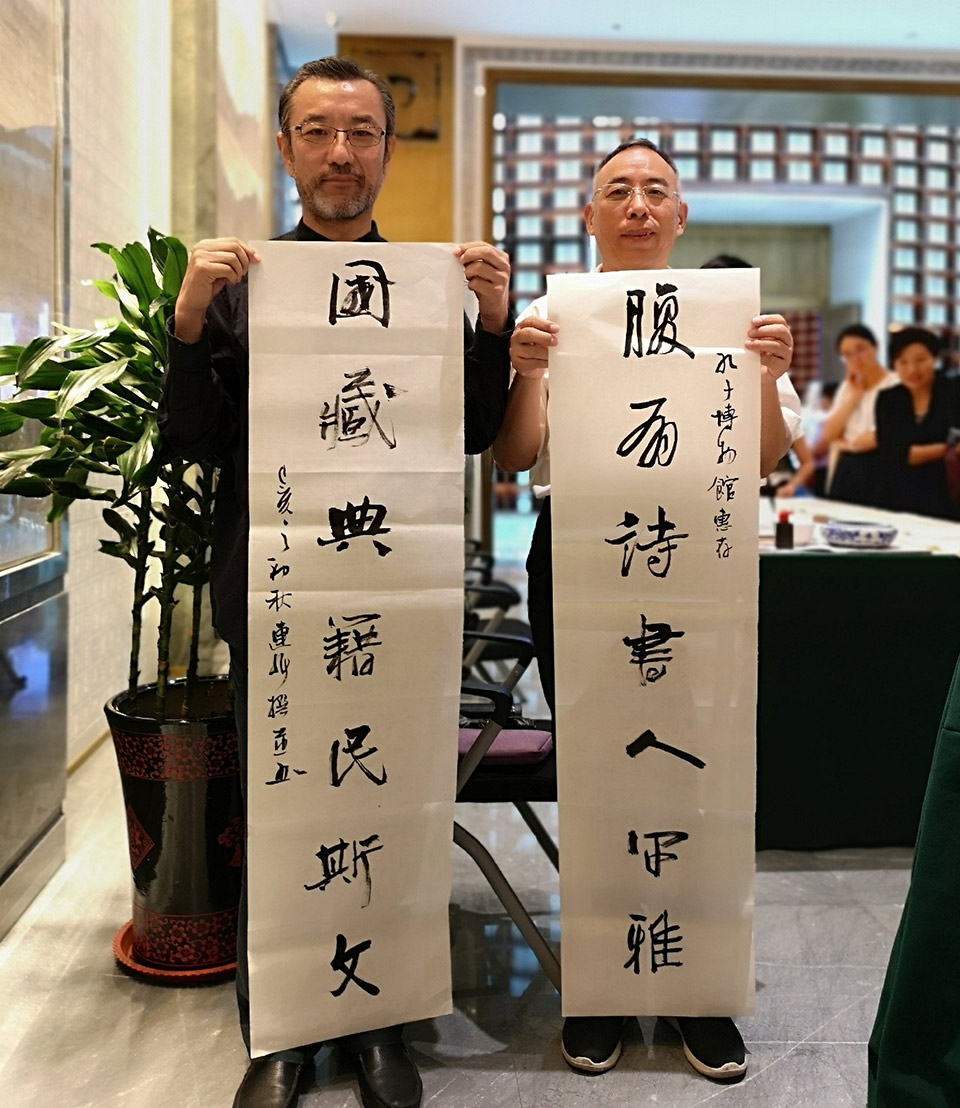 孔子博物館惠存
腹有詩書人雅
國藏典籍民斯文
己亥之初秋連撰並書